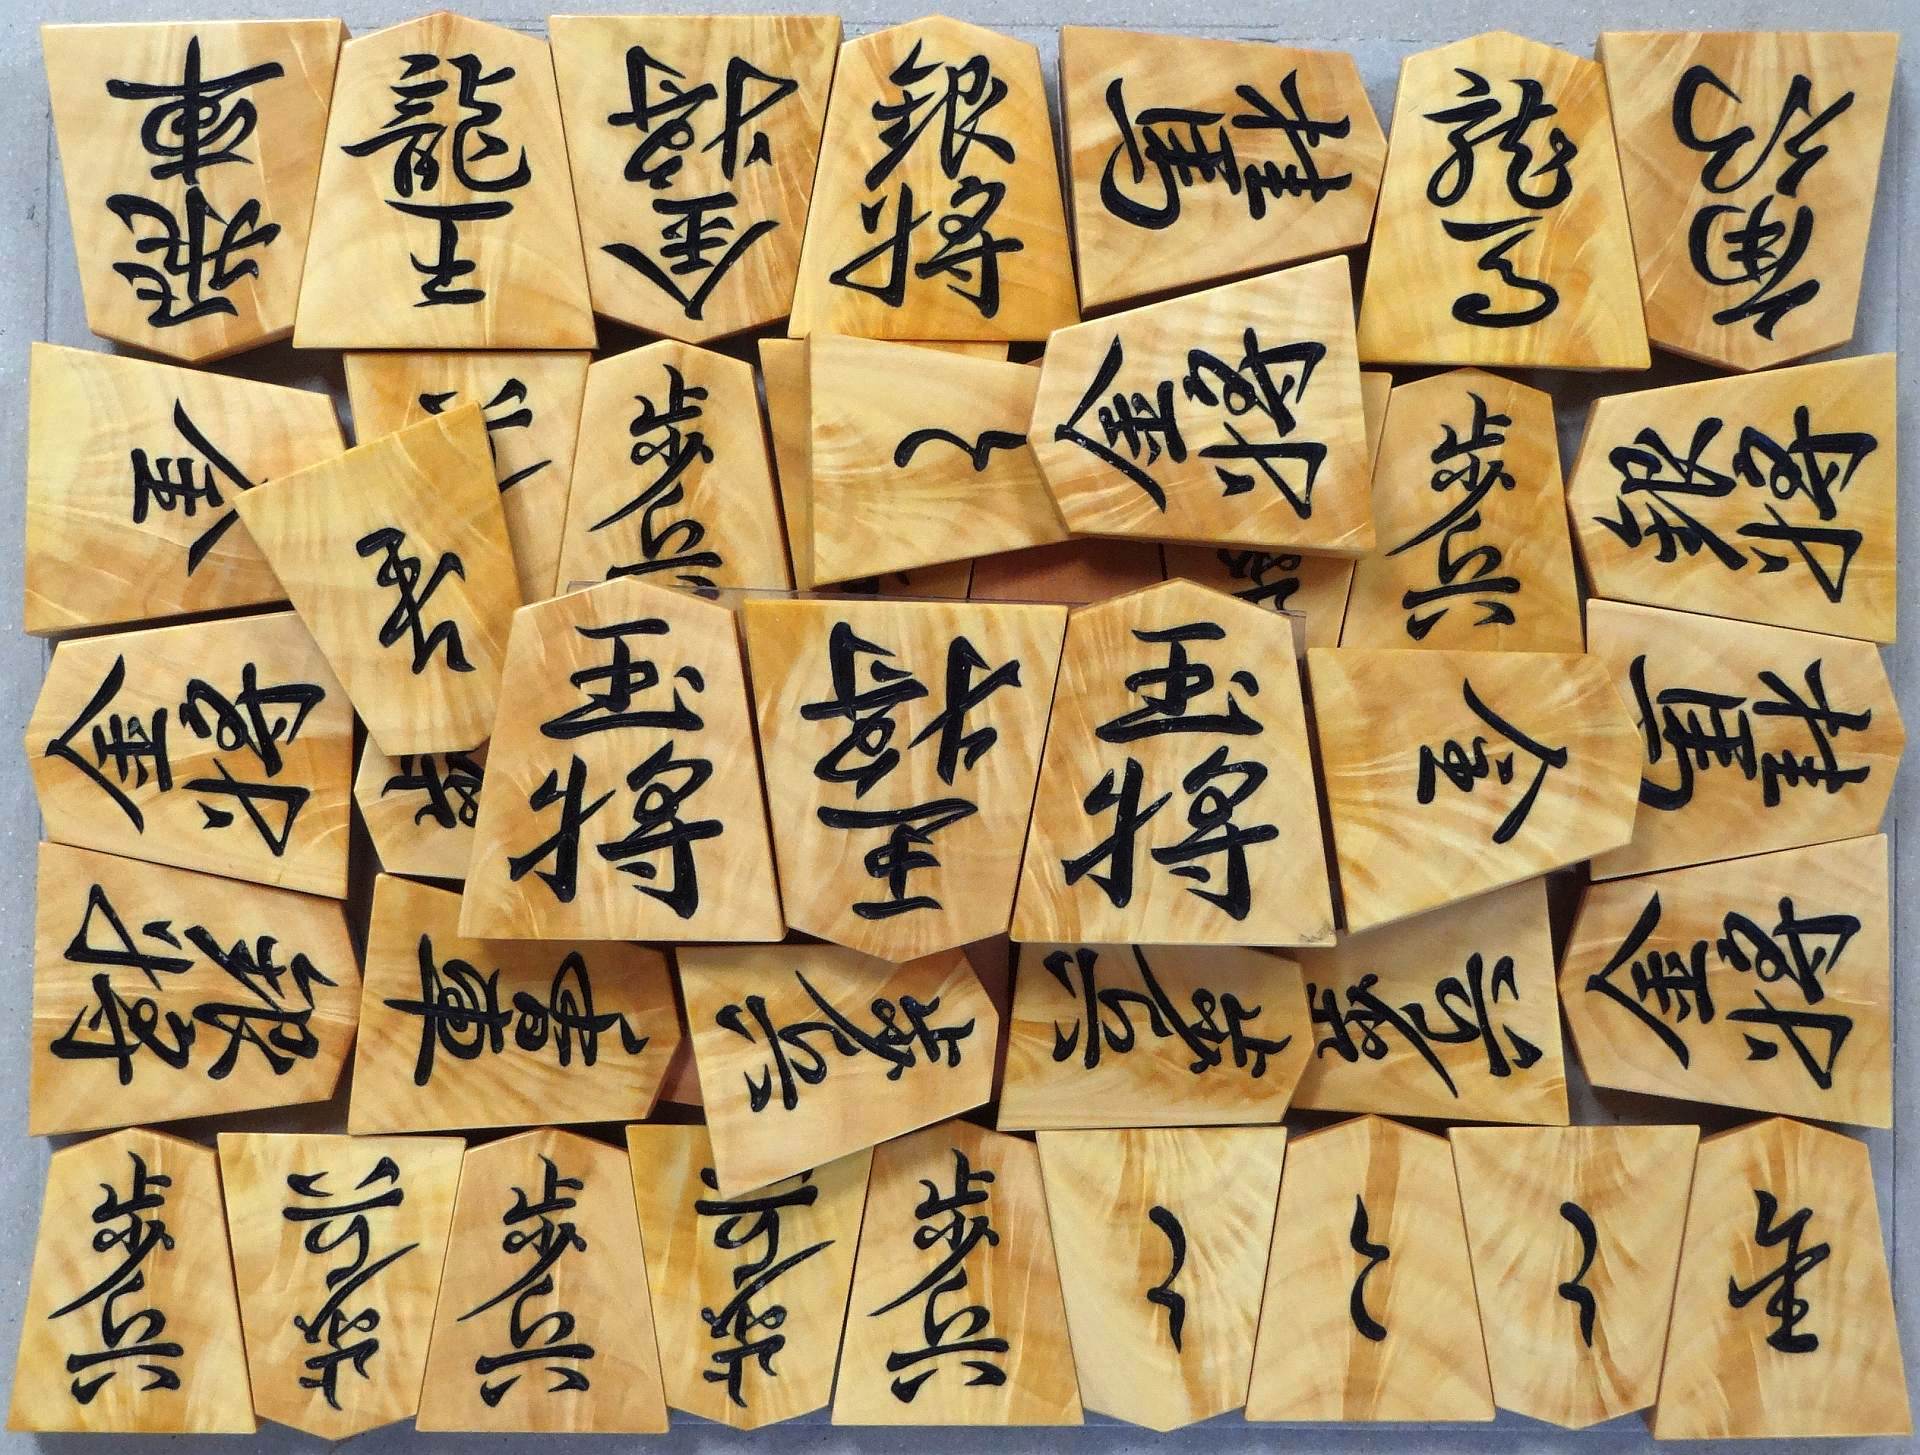 飛車
龍王
金将
銀将
桂馬
龍馬
角行
金
歩兵
と
金将
歩兵
銀将
金将
玉将
王将
玉将
金
桂馬
銀将
香車
歩兵
歩兵
歩兵
金将
歩兵
歩兵
歩兵
歩兵
歩兵
と
と
と